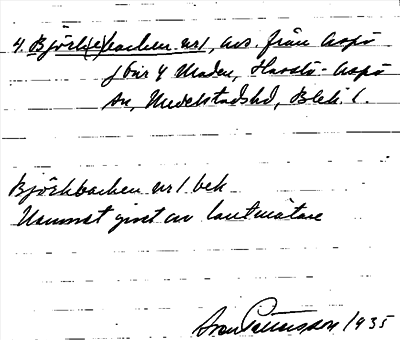 4. Björk(e)backen nr 1, avs. från Aspö
för 4 Maden, Hasslö-Aspö
sn, Medelstadshd, Blek. l.
Björkbacken nr 1 bek
Namnet givet av lantmätare
1935